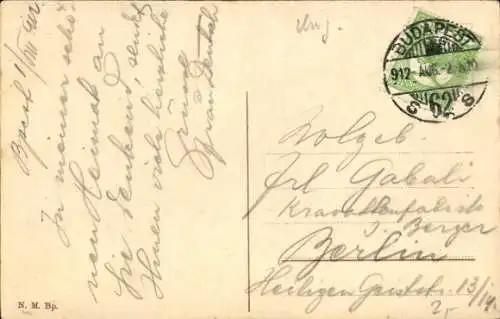 Bpest 1/VIII 912
In meiner schö
nen Heimat an
Sie denkend, sendet
Ihnen viele herzliche
Grüsse
Ung.
BUDAPEST
912 AUG. -2
62
S S
Wolgeb.
Frl Gabali
Kravattenfabrik
J. Berger
Berlin
Heiligen Geiststr. 13/14.
N. M. Bp.